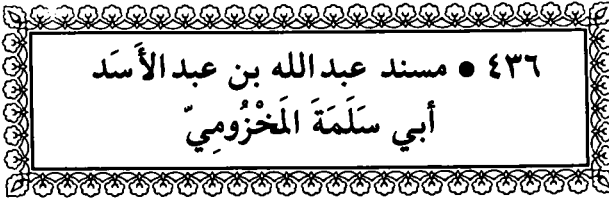 ٤٣٦ • مسند عبدالله بن عبدالأَسَد
أبي سَلَمَةَ المَخْزُومِيّ